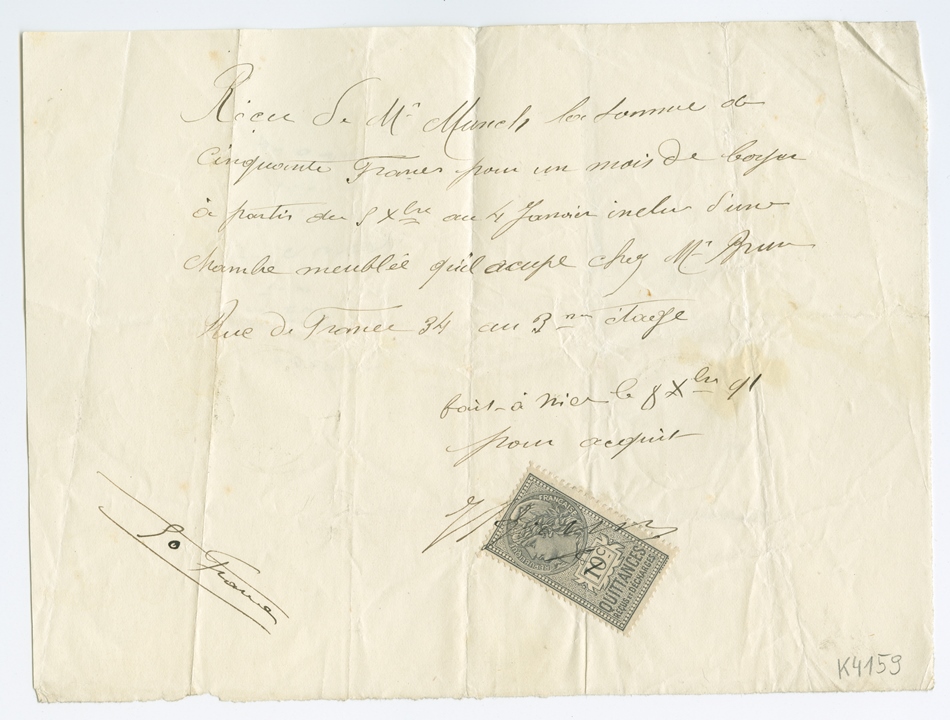 Reçu de Mr Munch la somme de
cinquante Francs pour un mois de loyer
à partir du 5 Xbre au 4 Janvier inclus d'une
chambre meublée qu'il acupe chez Mr Brun
Rue de France 34 au 3me étage
fait à Nice le 8 Xbre 91
pour acquit
FRANÇAISE
10c
QUITTANCES
REÇUS & DÉCHARGES
50 Francs
K4159